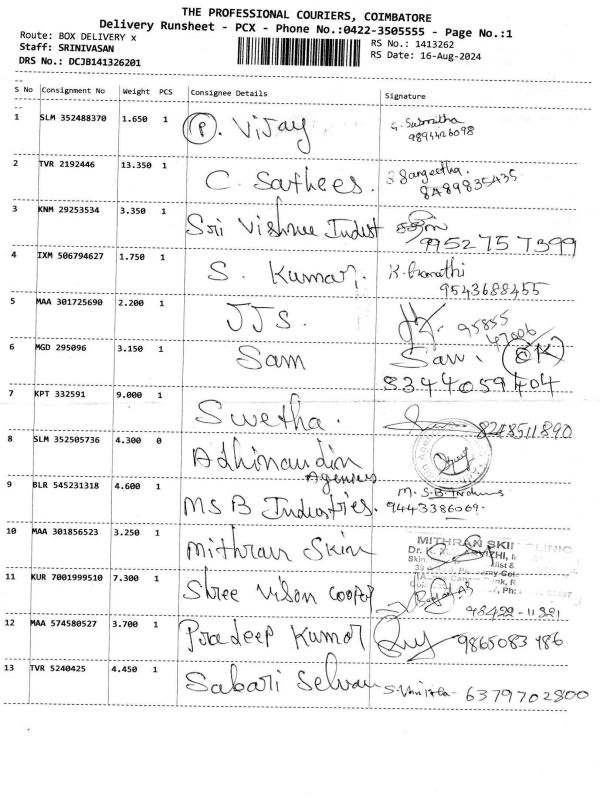 THE PROFESSIONAL COURIERS, COIMBATORE
Delivery Runsheet - PCX - Phone No.:0422-3505555 - Page No.:1
Route: BOX DELIVERY x
RS No.: 1413262
Staff: SRINIVASAN
RS Date: 16-Aug-2024
DRS No.: DCJB141326201
S No Consignment No Weight PCS Consignee Details Signature
1 SLM 352488370 1.650 1 P. Vijay
9894426098
2 TVR 2192446 13.350 1 C. Sathees. S. Sangeetha.
8489835435
3 KNM 29253534 3.350 1 Sri Vishnu Indust
9952757399
4 IXM 506794627 1.750 1 S. Kumar. K. Bharathi
9543688455
5 MAA 301725690 2.200 1 JJS. 95855
47006
6 MGD 295096 3.150 1 Sam Sam. OK
8344059404
7 KPT 332591 9.000 1 Swetha. 8248511890
8 SLM 352505736 4.300 0 Adhinandin
Agencies
9 BLR 545231318 4.600 1 MSB Industries. M.S.B. Indus
9443386069.
10 MAA 301856523 3.250 1 Mithran Skin MITHRAN SKIN CLINIC
Dr. K.
11 KUR 7001999510 7.300 1 Shree Vison
98422-11321
12 MAA 574580527 3.700 1 Pradeep Kumar 9865083486
13 TVR 5240425 4.450 1 Sabari Selvan 6379702800